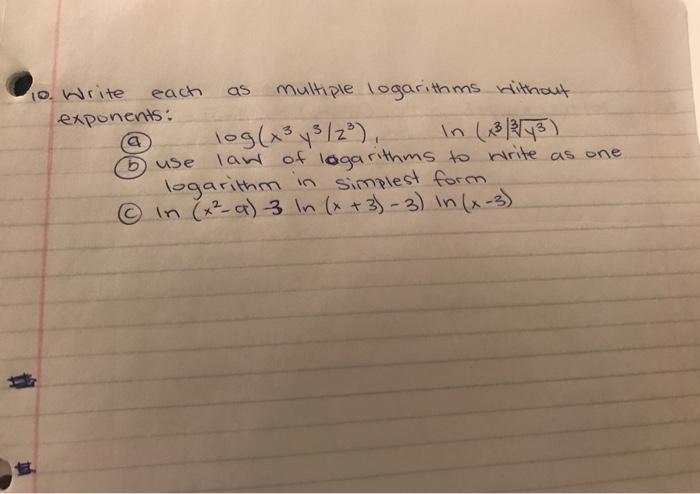 10. Write each as multiple logarithms without
exponents:
ⓐ log(x³ y³/z³), ln (x³/∛y³)
ⓑ use law of logarithms to write as one
logarithm in simplest form
ⓒ ln (x²-9) -3 ln (x + 3) - 3) ln (x-3)